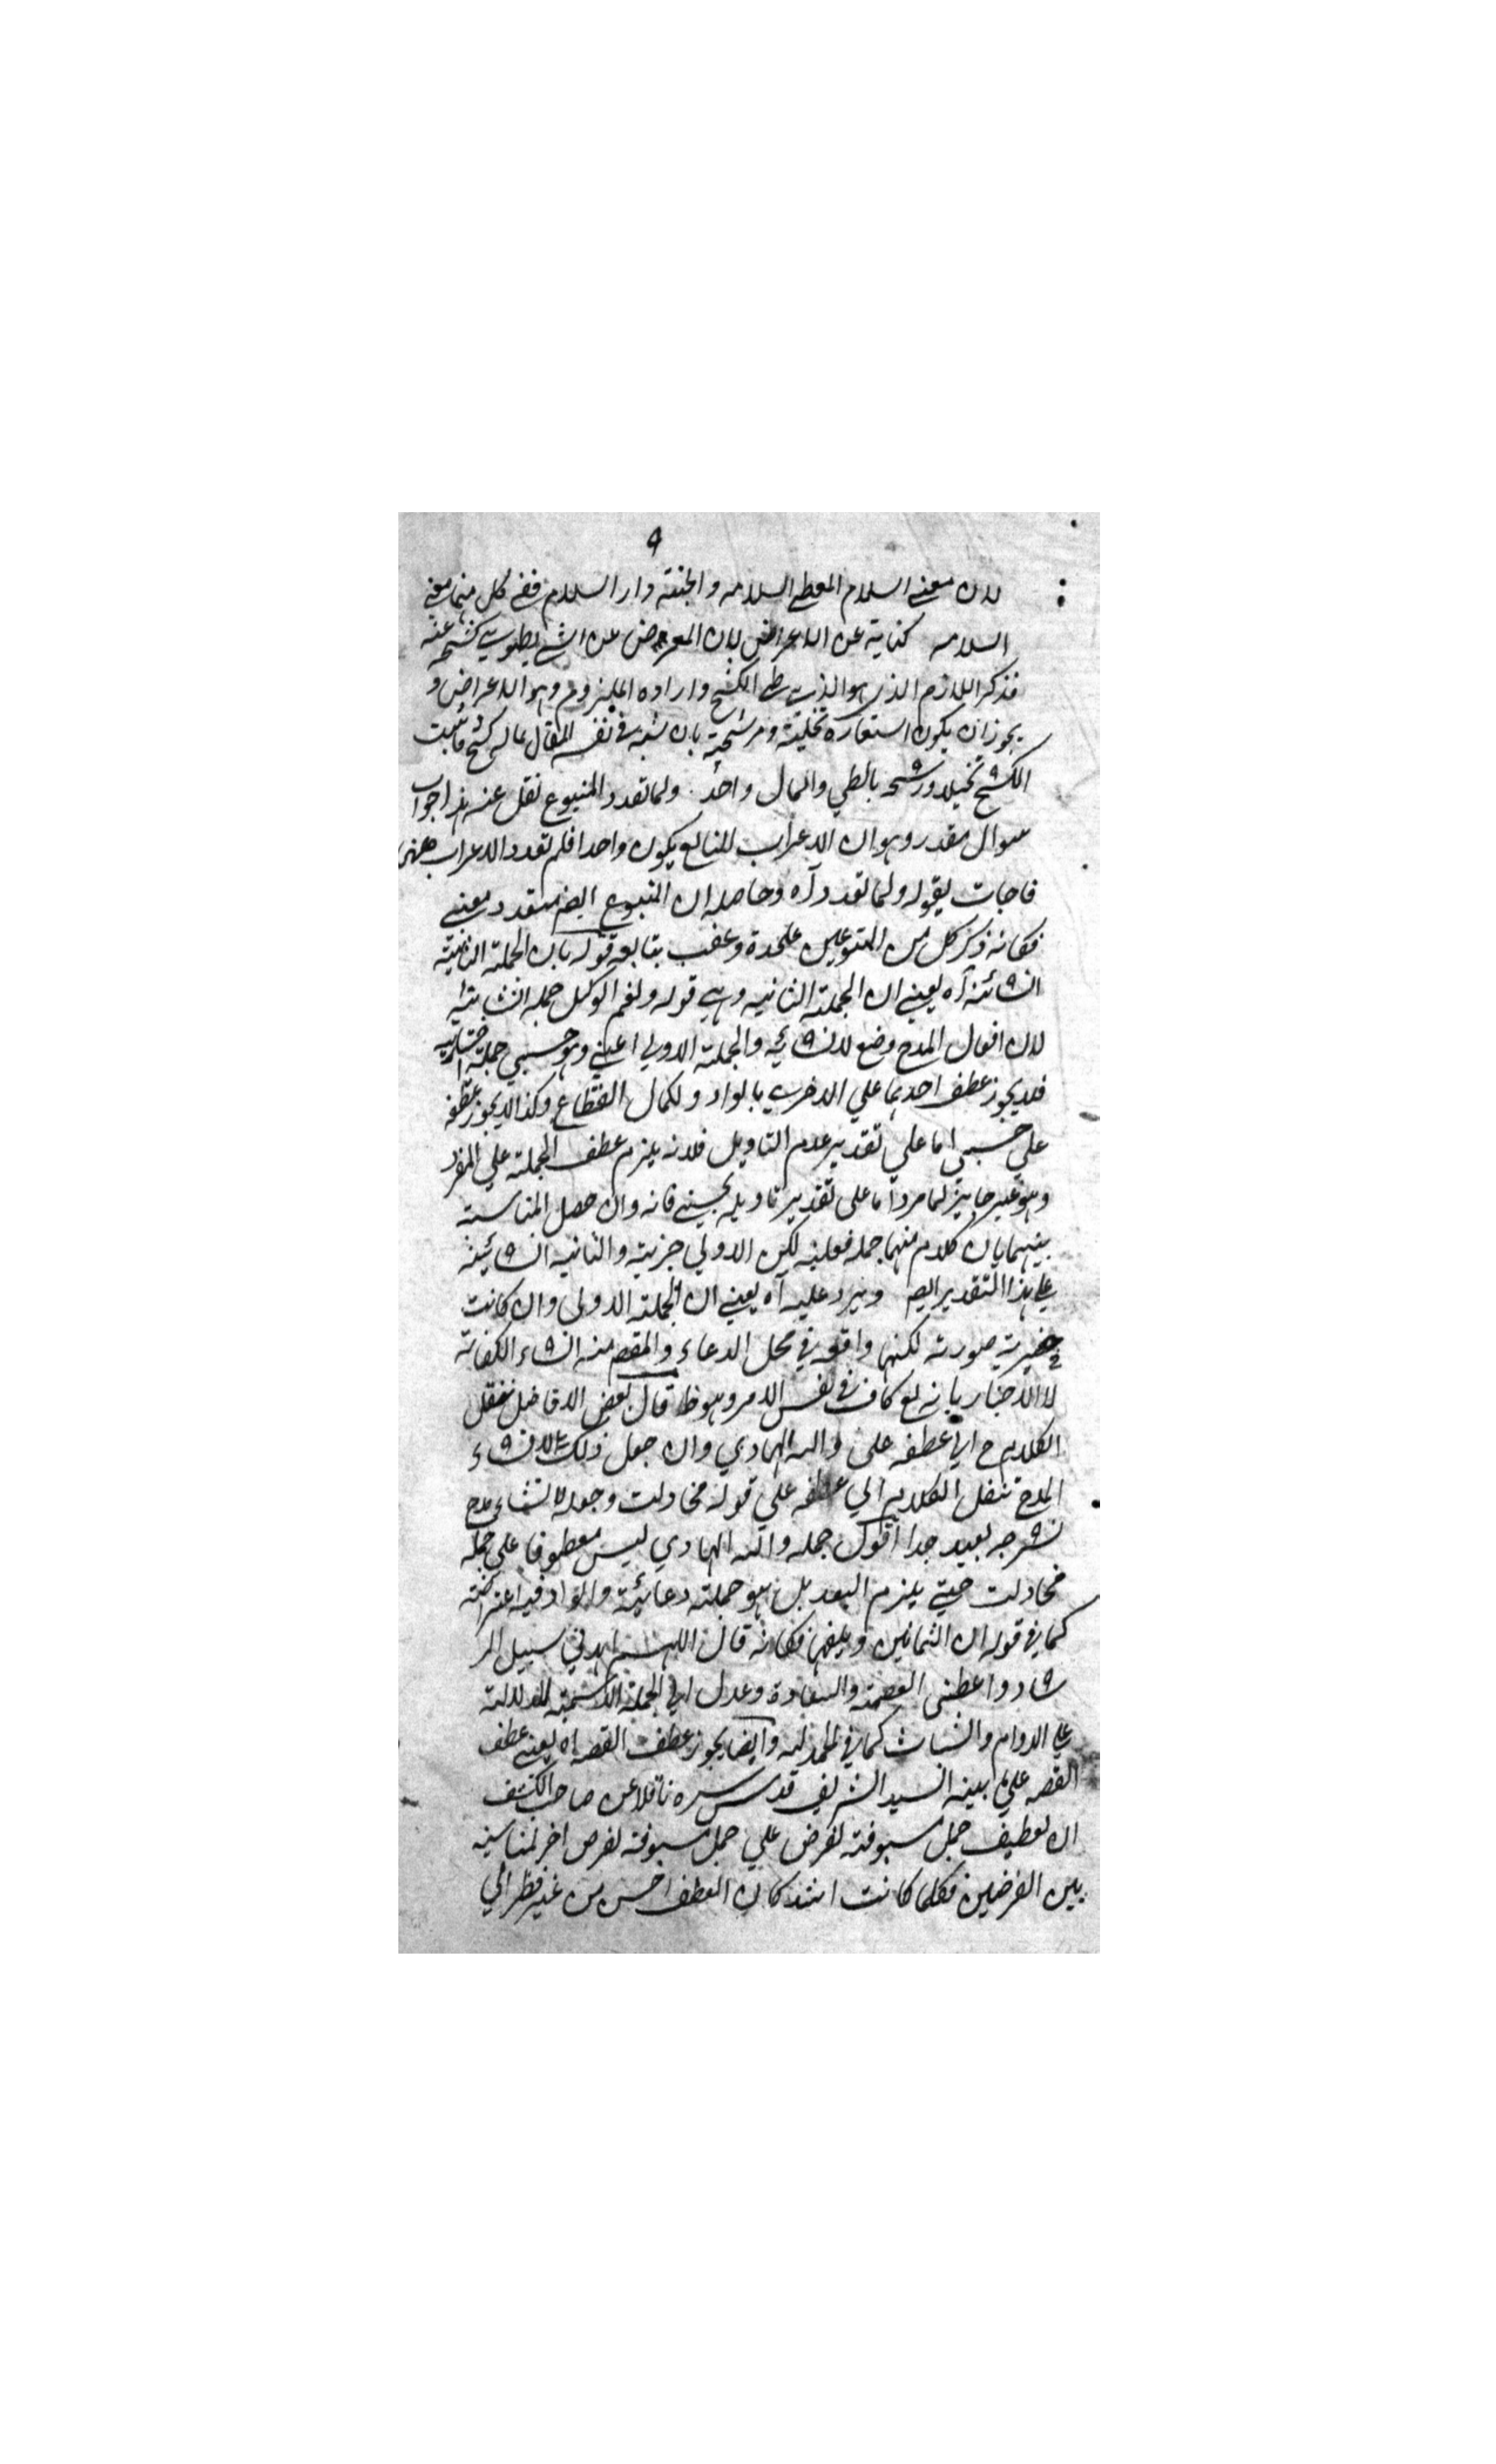 ٩
لان معنے السلام المعطے السلامه والجنته دار السلام ففے كل منها معنے
السلامه كناية عن الاعراض لان المعرض عن الشے يطوے كشحه عنه
فذكر اللازم الذے هو الذے طے الكشح واراده الملزوم وهو الاعراض و
يجوز ان يكون استعارة تخليته ومرشحته بان شبه فے نفسه المقال بماله كشح فاثبت
الكشح تخيلا ورشحه بالطي والمال واحد ولما تعدد المتبوع نقل عنه هذا جواب
سوال مقدر وهو ان الاعراب للتابع يكون واحدا فلم تعدد الاعراب ههنا
فاجاب بقوله ولما تعدد آه وحاصله ان المتبوع ايضم متعدد معنے
فكانه ذكر كل من المتبوعين علحدة وعقب بتابعه قوله بان الجملة الثانية
انشائنه آه يعنے ان الجملته الثانيه وهے قوله ونعم الوكيل جمله انشائيه
لان افعال المدح وضع لانشائيه والجملته الاولي اعنے وهو حسبي جملة اخباريه
فلا يجوز عطف احديهما علي الاخرے بالواو ولكمال انقطاع وكذا لا يجوز عطفه
علي حسبي اما علي تقدير عدم التاويل فلانه يلزم عطف الجملته علي المفرد
وهو غير جايز لما مر واما على تقدير تاويله يحسبنے فانه وان حصل المناسبة
بينهما بان كلا منهما جمله فعليه لكن الاولي خبريته والثانيه انشائينه
علے هذا التقدير ايضم ويرد عليه آه يعنے ان الجملته الاولى وان كانت
خبرية صورته لكنها واقعه في محل الدعاء والمقصم منه انشاء الكفاية
لا الاخبار بانه تع كاف فے نفس الامر وهو ظ قال بعض الافاضل ننقل
الكلام ح الي عطفه على والله الهادي وان جعل ذلك للانشاء
المدح ننقل الكلام الي عطفه علي قوله فحاولت وجعله لانشاء مدح
شرحه بعيد جدا اقول جمله والله الهادي ليس معطوفا علي جمله
فحاولت حتے يلزم البعد بل هو جملته دعائية والواو فيه اعتراضية
كما فے قوله ان الثمانين وبلغتها فكانه قال اللهم اهدني سبيل الر
شاد واعطنى العصمة والسعادة وعدل الي الجملة الاسمية للدلالة
علے الدوام والثبات كما فے الحمد لله وايضا يجوز عطف القصه اه يعنے عطف
القصه علي ما بينه السيد الشريف قدس سره ناقلا عن صاحب الكشف
ان يعطف جمل مسبوقته لغرض علي جمل مسبوقه لغرض اخر لمناسبة
بين الغرضين فكلما كانت اشد كان العطف احسن من غير نظر الي